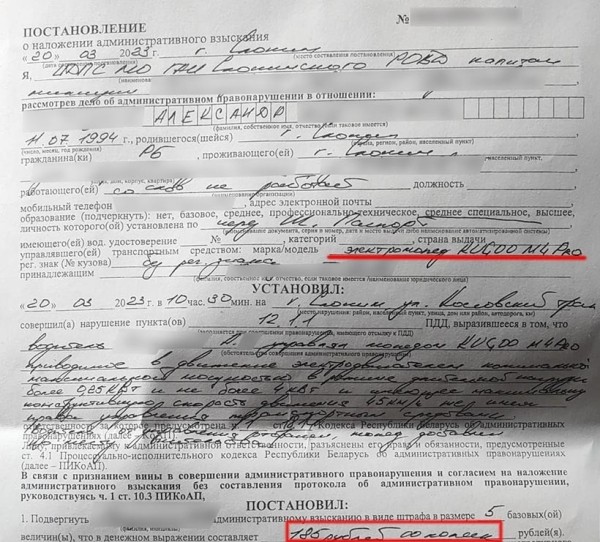 №
ПОСТАНОВЛЕНИЕ
о наложении административного взыскания
«20» 03 2023 г. г. Слоним
(дата составления постановления) (место составления постановления)
Я, ИДПС МО ГАИ Слонимского РОВД капитан
милиции
рассмотрев дело об административном правонарушении в отношении
АЛЕКСАНДР
(фамилия, собственное имя, отчество (если таковое имеется)
11.07.1994 г., родившегося(шейся) г. Слоним
(число, месяц, год рождения) (страна, регион, район, населенный пункт)
гражданина(ки) РБ, проживающего(ей) г. Слоним
работающего(ей) со слов не работает должность
мобильный телефон , адрес электронной почты
образование (подчеркнуть): нет, базовое, среднее, профессионально-техническое, среднее специальное, высшее,
личность которого(ой) установлена по
имеющего(ей) вод. удостоверение № , категорий , страна выдачи
управлявшего(ей) транспортным средством: марка/модель электромопед KUGOO M4 Pro
рег. знак (№ кузова) б/у рег. знака
принадлежащим
(фамилия, собственное имя, отчество (если таковое имеется)/наименование юридического лица)
УСТАНОВИЛ:
«20» 03 2023 г. в 10 час. 30 мин. на г. Слоним ул. Косовский тракт
совершил(а) нарушение пункта(ов) 12.1 ПДД, выразившееся в том, что
водитель управлял мопедом KUGOO M4 Pro
приводимое в движение электродвигателем номинальной
максимальной мощностью в режиме длительной нагрузки
более 0,25 кВт и не более 4 кВт и имеющее максимальную
конструктивную скорость движения 45 км/ч, не имея
права управления транспортными средствами
ответственность за которое предусмотрена ч.1 ст. Кодекса Республики Беларусь об административных
правонарушениях (далее – КоАП).
Лицу, привлекаемому к административной ответственности, разъяснены его права и обязанности, предусмотренные
ст. 4.1 Процессуально-исполнительного кодекса Республики Беларусь об административных правонарушениях
(далее – ПИКоАП).
В связи с признанием вины в совершении административного правонарушения и согласием на наложение
административного взыскания без составления протокола об административном правонарушении,
руководствуясь ч. 1 ст. 10.3 ПИКоАП,
ПОСТАНОВИЛ:
1. Подвергнуть административному взысканию в виде штрафа в размере 5 базовых(ой)
величин(ы), что в денежном выражении составляет 185 рублей 00 копеек рубля(ей).